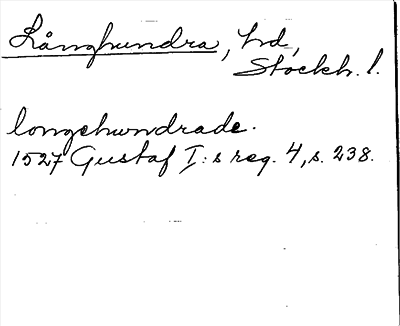 Långhundra, hd,
Stockh. l.
longehundrade.
1527 Gustaf I:s reg. 4, s. 238.